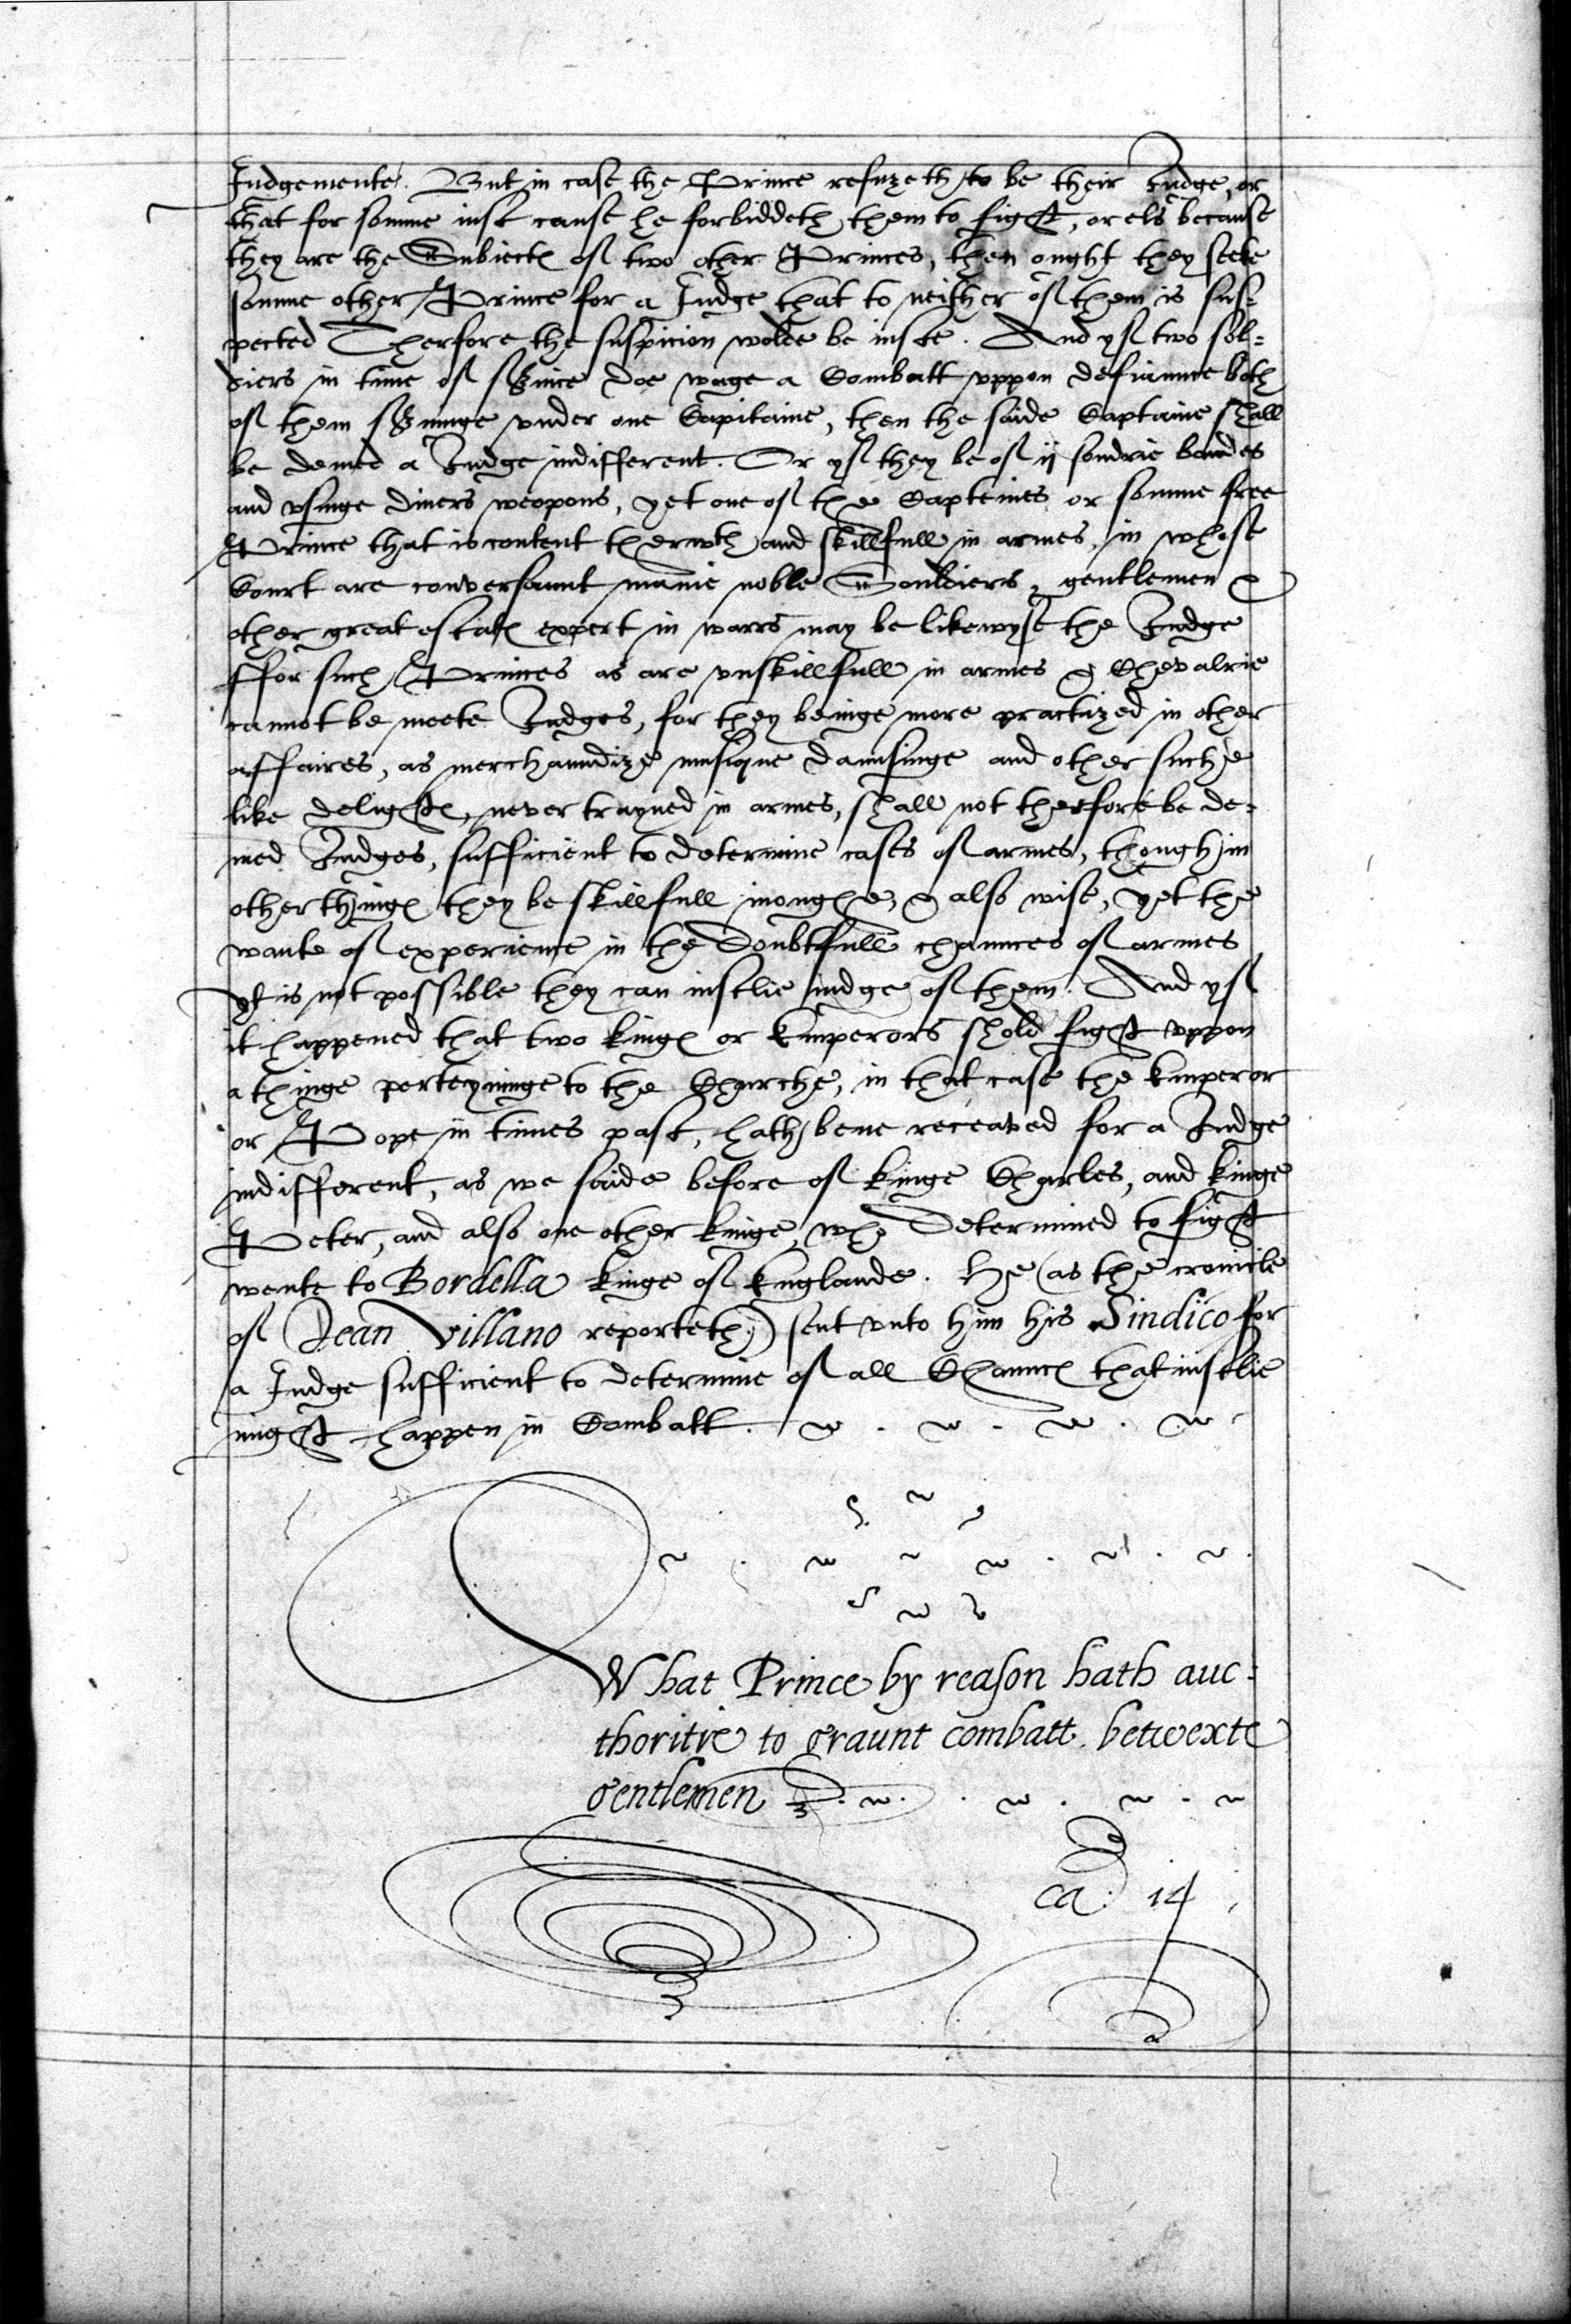 Judgemente. But in case the Prince refuzeth to be their Judge, or
that for somme iust cause he forbiddeth them to fight, or els because
they are the Subiectes of two other Princes, then ought they seeke
somme other Prince for a Judge that to neither of them is sus=
pected Therfore the suspicion wolde be iuste. And yf two sol=
diers in time of servuice doe wage a Combatt vppon defiaunce both
of them servinge vnder one Capitaine, then the saide Captaine shall
be demed a Judge indifferent. Or yf they be of ij sondrie bandes
and vsinge diuers weopons, yet one of the Capteines or somme free
Prince that is content therwth and skillfull in armes, in whose
Court are conversaunt manie noble Souldiers, gentlemen &
other great estates expert in warrs may be likewyse the Judge
ffor such Princes as are vnskillfull in armes & Chevalrie
cannot be meete Judges, for they beinge more practized in other
affaires, as merchaundize musique daunsinge and other suche
like delightes, never trayned in armes, shall not therfore be de=
med Judges, sufficient to determine cases of armes, though in
other thinges they be skillfull inoughe, & also wise, yet the
wante of experience in the doubtfull chaunces of armes
yt is not possible they can iustlie iudge of them. And yf
it happened that two kinges or Emperors shold fight vppon
a thinge perteyninge to the Churche, in that case the Emperor
or Pope in times past, hath bene receaved for a Judge
indifferent, as we saide before of kinge Charles, and kinge
Peter, and also one other kinge, who determined to fight
wente to Bordella kinge of Englande. He (as the cronicle
of Jean Villano reporteth) sent vnto him his Sindico for
a Judge sufficient to determine of all Chaunces that iustlie
might happen in Combatt.
What Prince by reason hath auc=
thoritie to graunt combatt betwexte
gentlemen
ca: 14